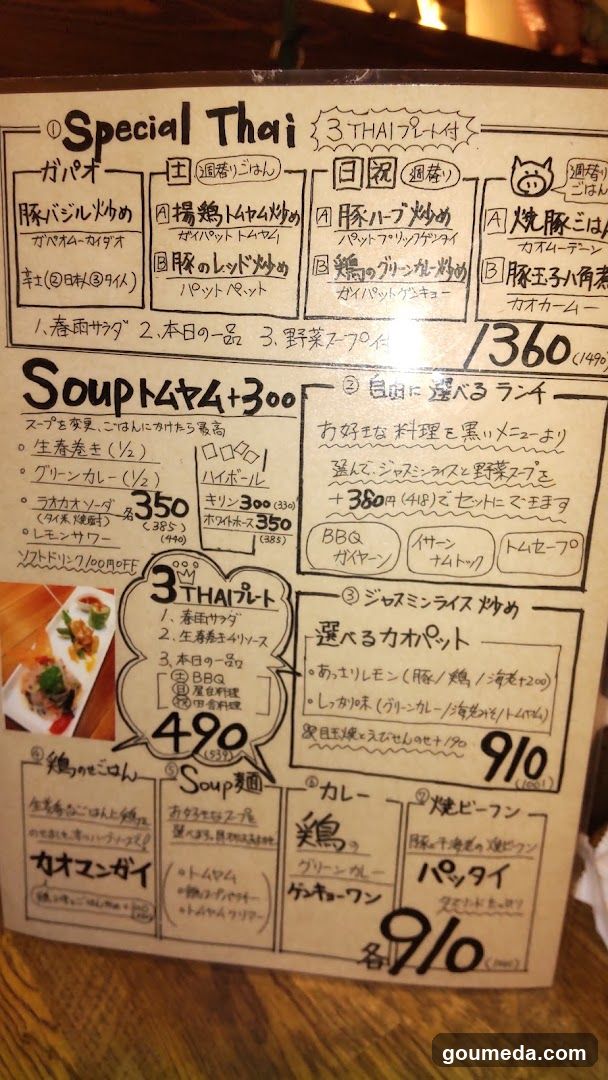 ① Special Thai 3 THAIプレート付
ガパオ
豚バジル炒め
ガパオムーカイダオ
辛士(②日本人③タイ人)
土 週替りごはん
A 揚鶏トムヤム炒め
ガイパット トムヤム
B 豚のレッド炒め
パット ペット
日 祝 週替り
A 豚ハーブ炒め
パットプリックゲンタイ
B 鶏のグリーンカレー炒め
ガイパットゲンキョー
週替り
ごはん
A 焼豚ごはん
カオムーデーン
B 豚玉子八角煮
カオカームー
1、春雨サラダ 2、本日の一品 3、野菜スープ付
1360 (1490)
Soup トムヤム+300
スープを変更、ごはんにかけたら最高
・生春巻き(1/2)
・グリーンカレー(1/2)
・ラオカオソーダ
(タイ米焼酎)
各350
(385)
(440)
・レモンサワー
ソフトドリンク100円OFF
ハイボール
キリン300(330)
ホワイトホース350
(385)
② 自由に選べるランチ
お好きな料理を黒いメニューより
選んで、ジャスミンライスと野菜スープを
+380円(418)でセットにできます
BBQ
ガイヤーン
イサーン
ナムトック
トムセープ
3 THAIプレート
1、春雨サラダ
2、生春巻き4リソース
3、本日の一品
土 BBQ
日 屋台料理
祝 田舎料理
490
(539)
③ ジャスミンライス炒め
選べるカオパット
・あっさりレモン(豚/鶏/海老+200)
・しっかり味(グリーンカレー/海老みそ/トムヤム)
目玉焼とえびせんのせ+190
910
(1001)
④ 鶏のせごはん
カオマンガイ
⑤ Soup麺
お好きなスープを
・トムヤム
・トムヤムクリアー
⑥ カレー
鶏の
グリーンカレー
ゲンキョーワン
⑦ 焼ビーフン
豚と干海老の焼ビーフン
パッタイ
タマリンドたっぷり
各910
(1001)
goumeda.com